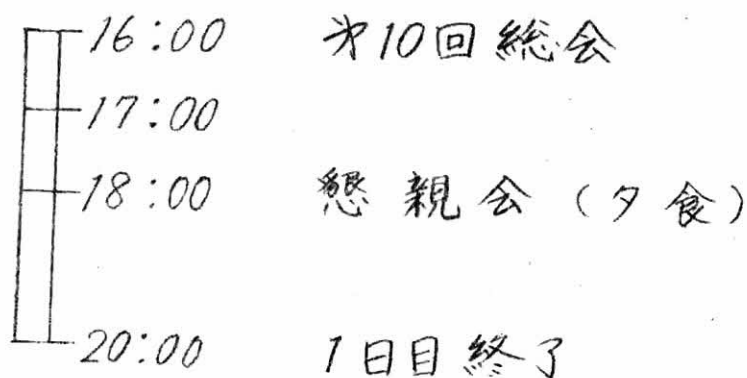 16:00 才10回総会
17:00
18:00 懇親会（夕食）
20:00 1日目終了